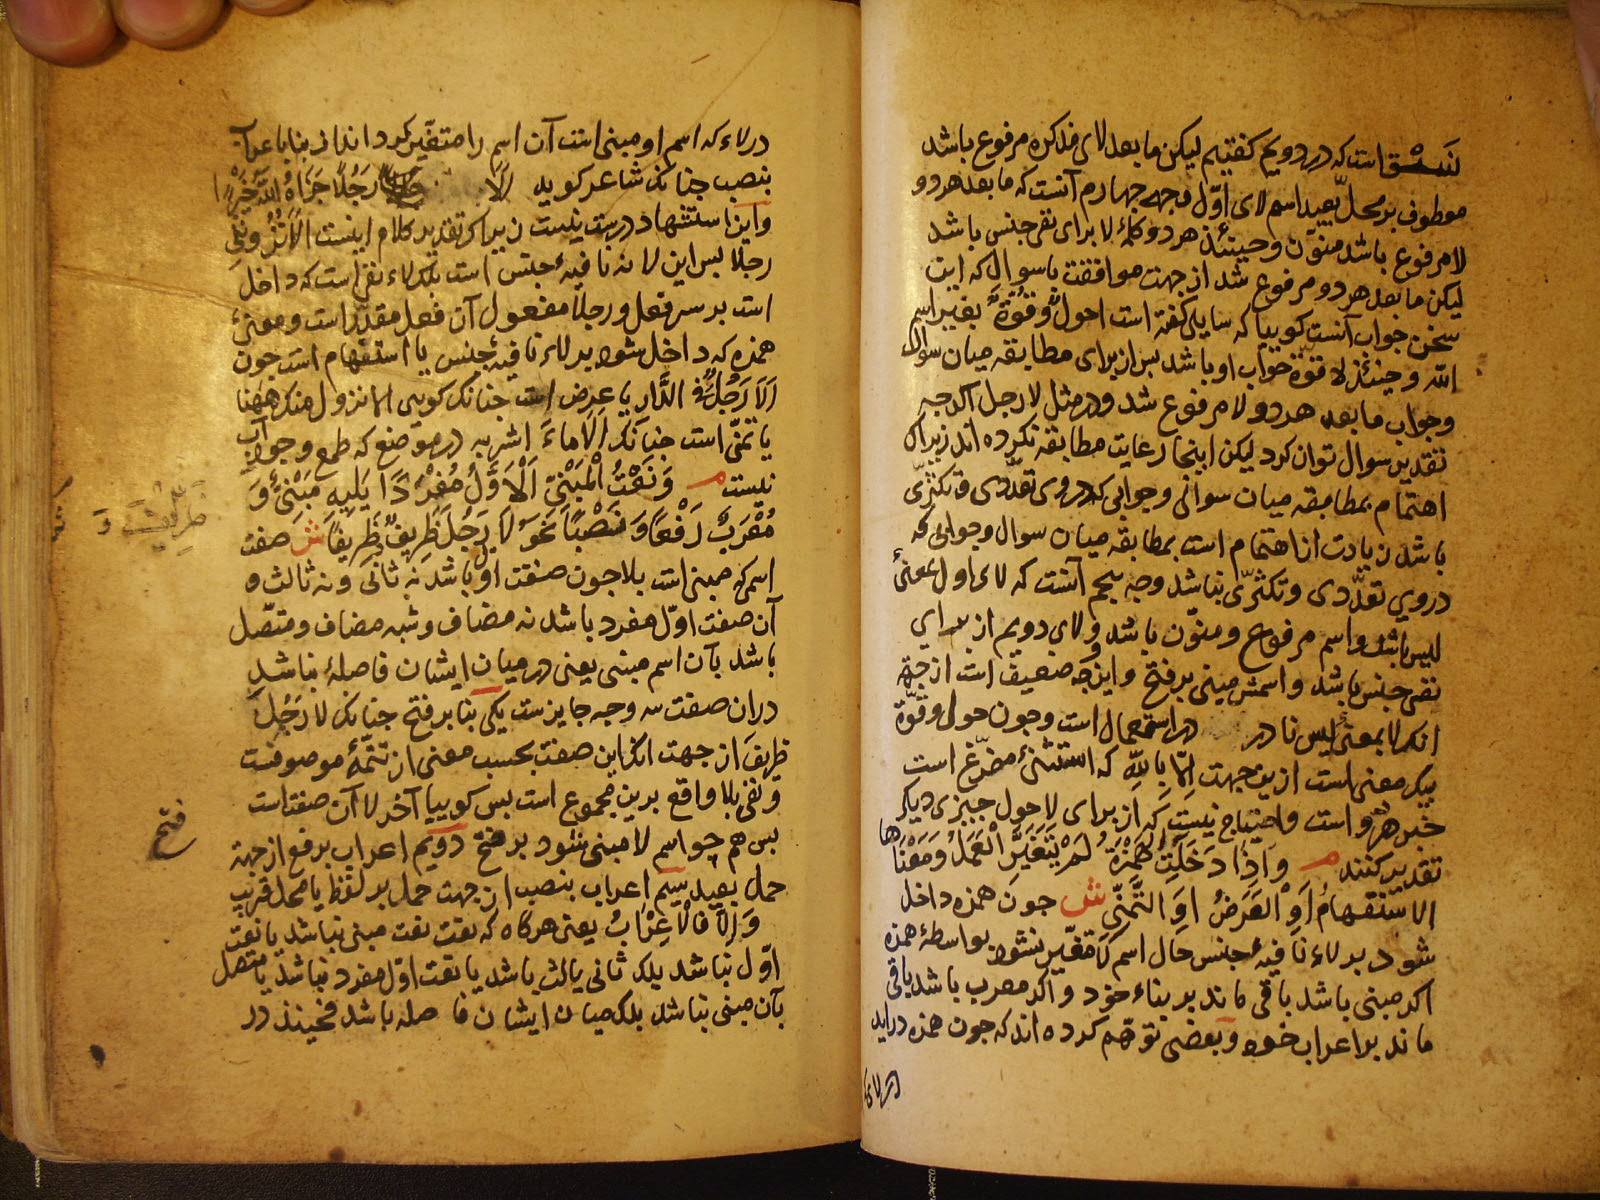 نسق است که در دویم گفتیم لیکن ما بعد لای مذکره مرفوع باشد
معطوف بر محل بعید اسم لای اوّل وجهه چهارم آنست که ما بعد هر دو
لا مرفوع باشد منوّن و حینئذ هر دو کلمهٔ لا برای نفی جنس باشد
لیکن ما بعد هر دو مرفوع شد از جهت موافقت با سوال که این
سخن جواب آنست کوییا که سایلی کفته است احولٌ وَّقُوَّةٌ بغیر اسم
الله و حینئذ لا قوّة جواب او باشد بس از برای مطابقه میان سوال
و جواب ما بعد هر دو لا مرفوع شد و در مثل لا رجل اکرچه
تقدیر سوال توان کرد لیکن اینجا رعایت مطابقه نکرده اند زیراک
اهتمام بمطابقه میان سوالی و جوابی که در وی تعدّدی و تکثرّی
باشد زیادت از اهتمام است بمطابقه میان سوال و جوابی که
در وی تعدّدی و تکثرّی نباشد وجه پنجم آنست که لای اول بمعنیٔ
لیس باشد و اسم مرفوع و منوّن باشد و لای دویم از برای
نفی جنس باشد و اسمش مبنی بر فتح و این وجه ضعیف است از جهة
انکه لا بمعنی لیس نادر در استعمال است و چون حول و قوّة
بیک معنی است ازین جهت اِلّا بِاللّٰهِ که استثنیٔ مفرّغ است
خبر هر دو است و احتیاج نیست که از برای لا حول چیزی دیکر
تقدیر کنند م وَ اِذَا دَخَلَتِ الْهَمْزَةُ لَمْ یَتَغَیَّرِ الْعَمَلُ وَ مَعْنَاهَا
الاستفهامُ اَوِ الْعَرْضُ اَوِ التَّمَنّی ش چون همزه داخل
شود بر لاء نافیهٔ جنس حال اسم لا متغیّر نشود بواسطهٔ همزه
اکر مبنی باشد باقی ماند بر بناء خود و اکر معرب باشد باقی
ماند بر اعراب خود و بعضی توهّم کرده اند که چون همزه دراید
در لای
در لاء که اسم او مبنی است آن اسم را متغیّر کرداند از بنا با عراب
بنصب چنانک شاعر کوید اَلَا رَجُلًا جَزَاهُ اللّٰهُ خَیْرًا
و این استشهاد درست نیست زیراکه تقدیر کلام اینست الا تُرُونَنِی
رجلا بس این لا نه نافیهٔ جنس است بلکه لاء نفی است که داخل
است بر سر فعل و رجلا مفعول آن فعل مقدّر است و معنیٔ
همزه که داخل شود بر لاء نافیهٔ جنس یا استفهام است چون
اَلَا رَجُلَ فی الدَّارِ یا عرض است چنانک کویی الا نزول منک ههنا
یا تمنّی است چنانکه الا ماءَ اشربه در موضع که طمع و جواب آب
نیست م وَ نَعْتُ الْمَبْنِیّ اَلْاَوَّلُ مُفْرَدًا یَلِیهِ مَبْنِیٌّ وَ
مُعْرَبٌ رَفْعًا وَ نَصْبًا نَحْوُ لَا رَجُلَ ظَرِیفَ وَ ظَرِیفٌ وَ ظَرِیفًا ش صفت
اسمی که مبنی است بلا چون صفت اوّل باشد نه ثانی و نه ثالث و
آن صفت اوّل مفرد باشد نه مضاف و شبه مضاف و متصّل
باشد بآن اسم مبنی یعنی در میان ایشان فاصلهٔ نباشد
در ان صفت سه وجه جایزست یکی بنا بر فتح چنانک لا رَجُلَ
ظریفَ از جهت انکه این صفت بحسب معنی از تتمّهٔ موصوفست
و نفی بلا واقع برین مجموع است بس کوییا آخر لا آن صفتست
بس هم چو اسم لا مبنی شود بر فتح دویم اعراب برفع از جهة
حمل بعید سیم اعراب بنصب از جهت حمل بر لفظ یا محل قریب
وَ اِلَّا فَالْاِعْرَابُ یعنی هرکاه که نعت نعت مبنی نباشد یا نعت
اوّل نباشد بلکه ثانی یا ثالث باشد یا نعت اوّل مفرد نباشد یا متصل
بآن مبنی نباشد بلک میان ایشان فاصله باشد فحینئذ در
فتح